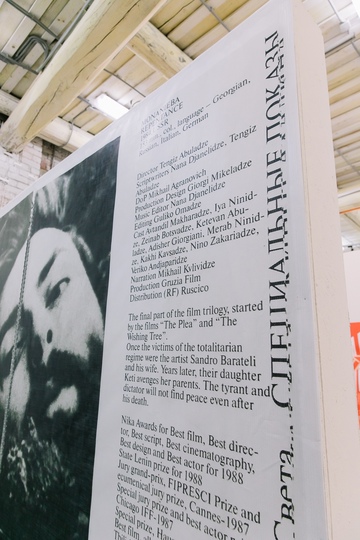 MONANIEBA
REPENTANCE
language – Georgian,
Russian, Italian, German
Director Tengiz Abuladze
Scriptwriters Nana Djanelidze, Tengiz
Abuladze
DoP Mikhail Agranovich
Production Design Giorgi Mikeladze
Music Editor Nana Djanelidze
Editing Guliko Omadze
Cast Avtandil Makharadze, Iya Ninid-
ze, Zeinab Botsvadze, Ketevan Abu-
ladze, Adisher Giorgiani, Merab Ninid-
ze, Kakhi Kavsadze, Nino Zakariadze,
Veriko Andjaparidze
Narration Mikhail Kvlividze
Production Gruzia Film
Distribution (RF) Ruscico
The final part of the film trilogy, started
by the films “The Plea” and “The
Wishing Tree”.
Once the victims of the totalitarian
regime were the artist Sandro Barateli
and his wife. Years later, their daughter
Keti avenges her parents. The tyrant and
dictator will not find peace even after
his death.
Nika Awards for Best film, Best direc-
tor, Best script, Best cinematography,
Best design and Best actor for 1988
State Lenin prize for 1988
Jury grand-prix, FIPRESCI Prize and
ecumenical jury prize, Cannes-1987
Special jury prize and best actor prize,
Chicago IFF-1987
Special prize,
Best film,
Света... СПЕЦИАЛЬНЫЕ ПОКАЗЫ